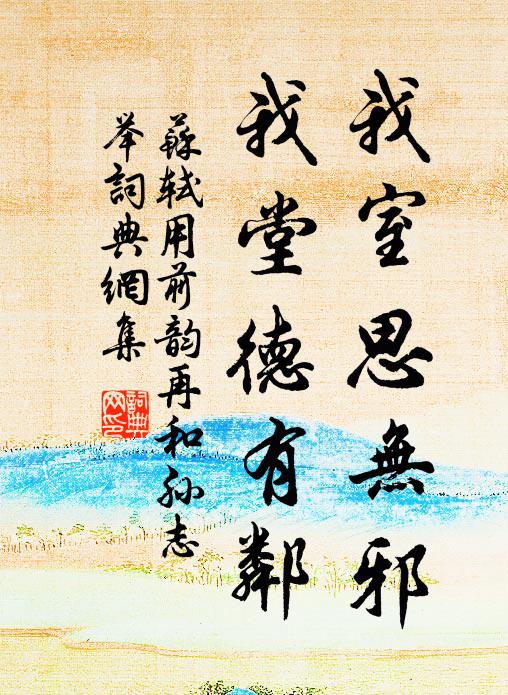 我室思無邪
我堂德有鄰
蘇軾用前韵再和孫志
举詞典網集
詞典
网印